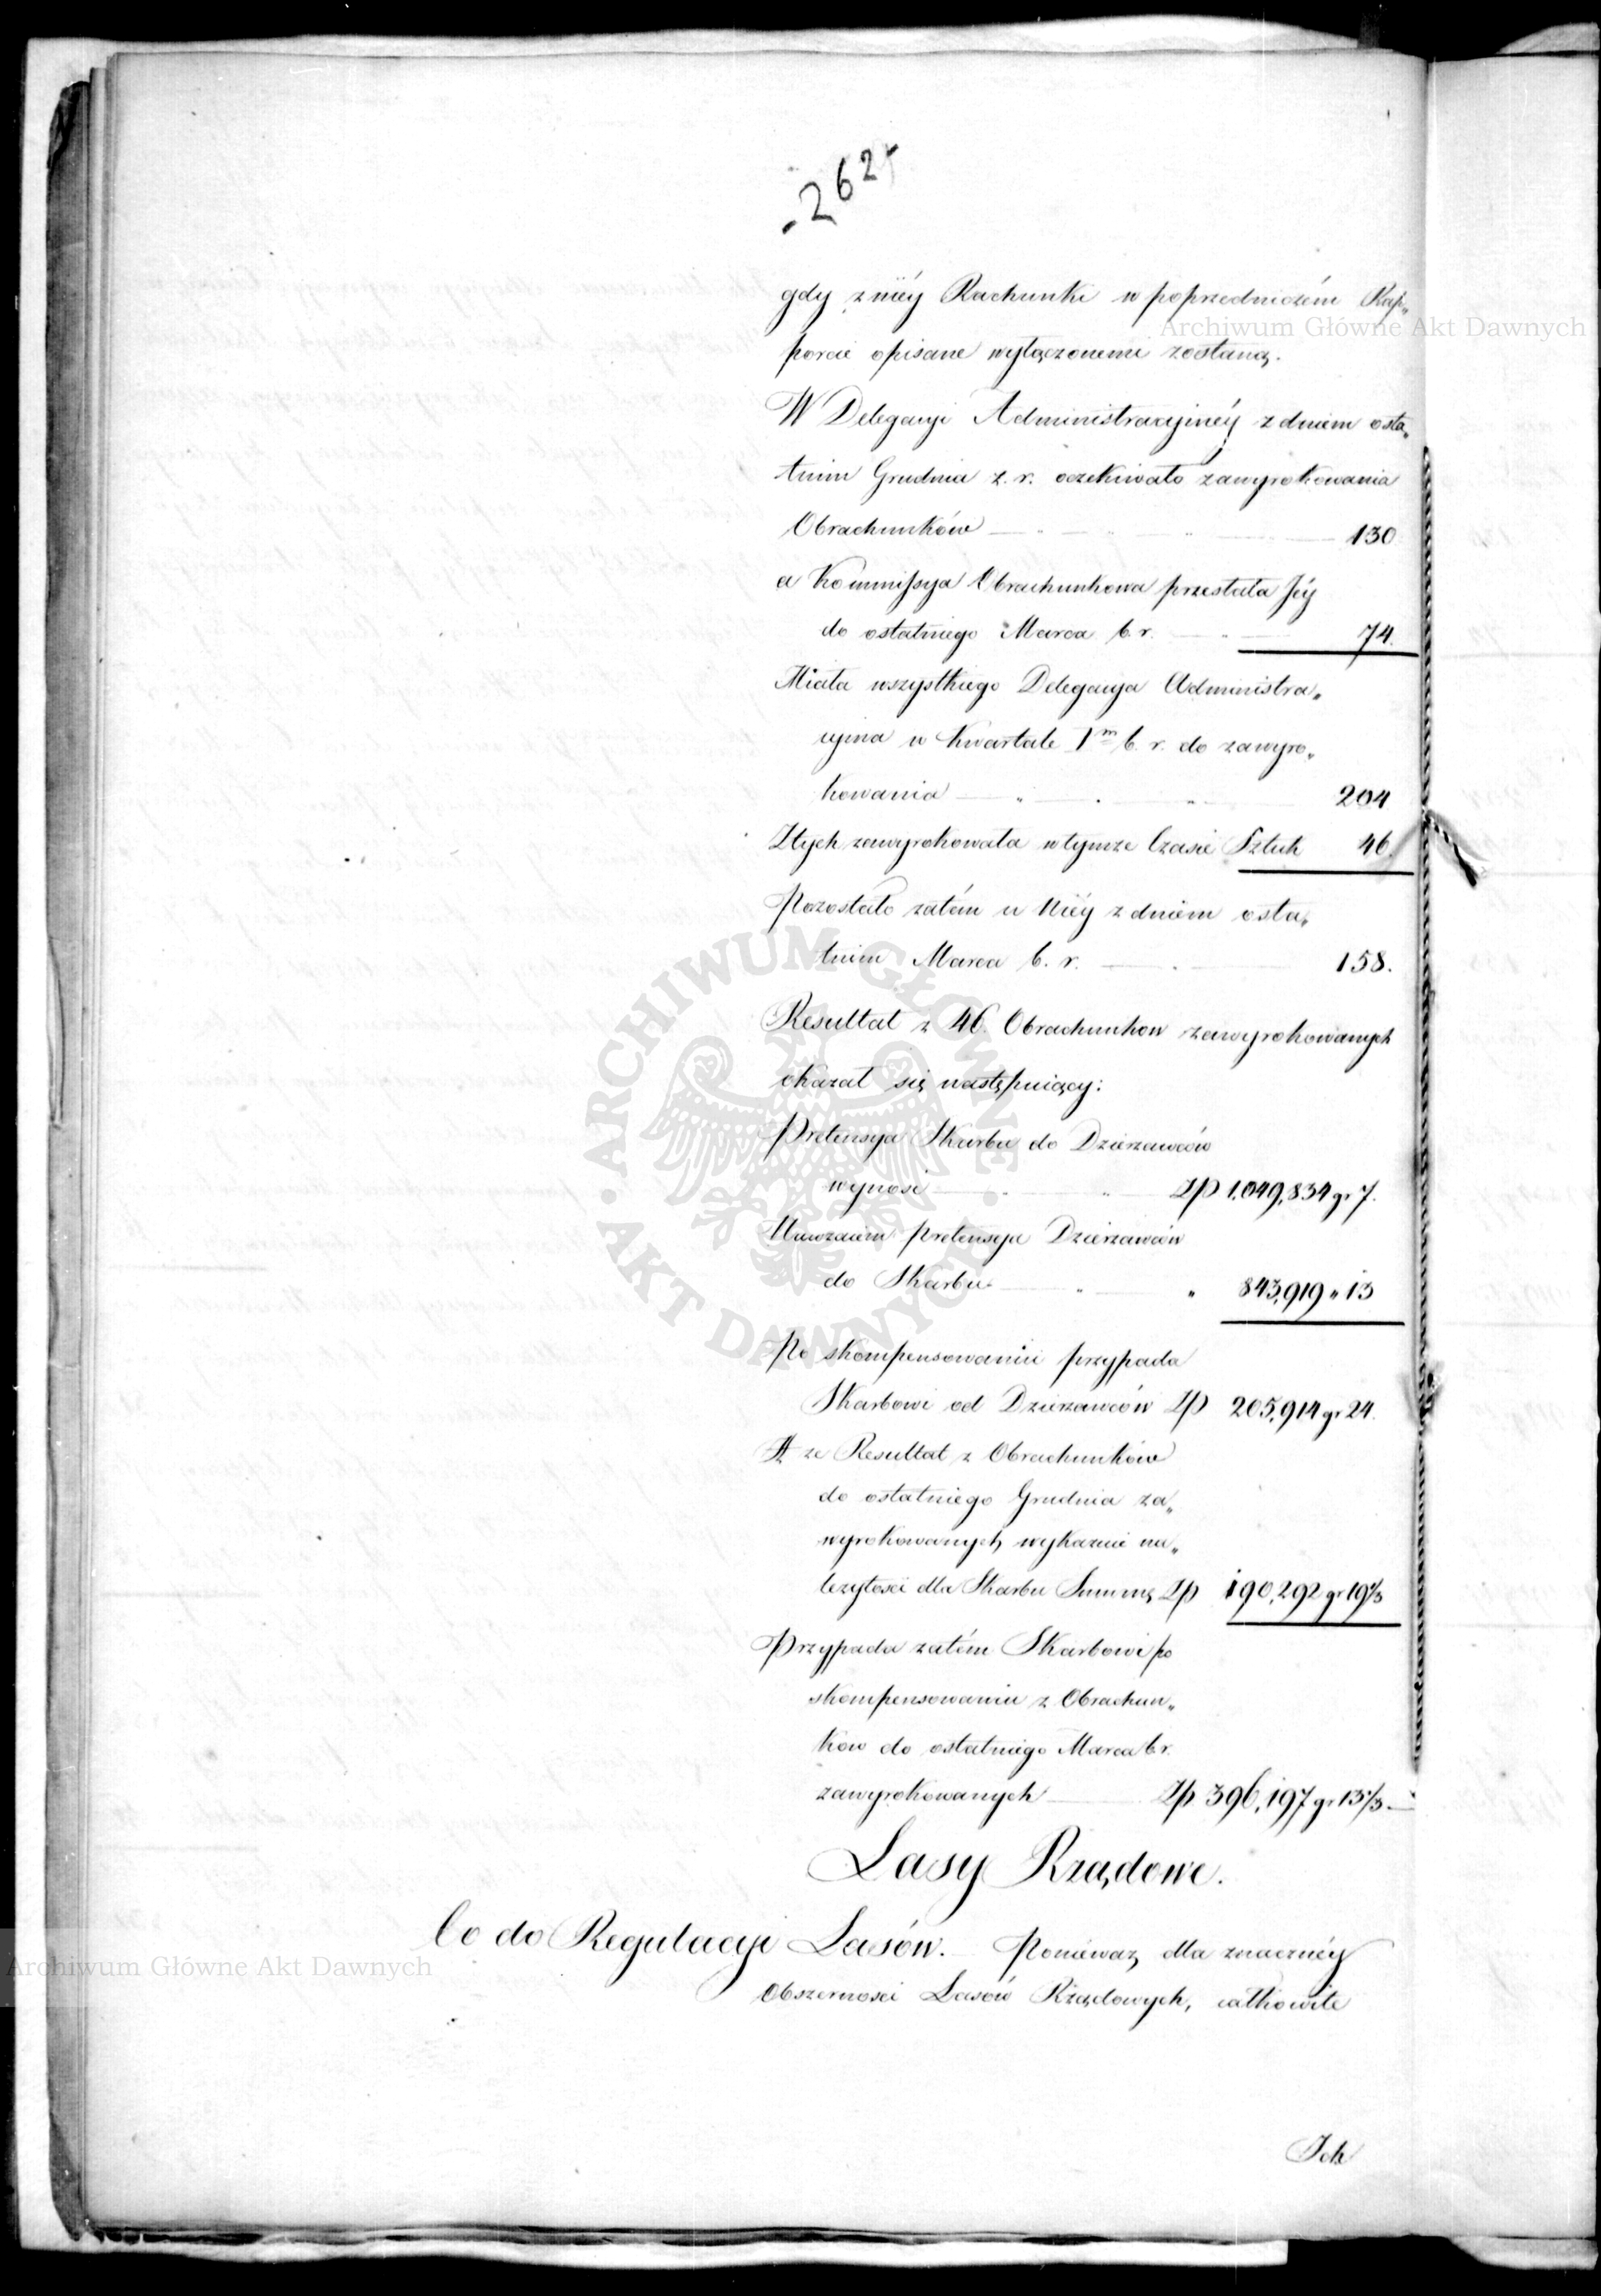 262
gdy z niéy Rachunki w poprzedniczém Rap„
porcie opisane wyłączonemi zostaną.
W Delegacyi Administracyjnéy z dniem osta„
tnim Grudnia z. r. oczekiwało zawyrokowania
Obrachunków 130
a Kommissya Obrachunkowa przestała Jéy
do ostatniego Marca b. r. 74.
Miała wszystkiego Delegacya Administra„
cyina w Kwartale I m b. r. do zawyro„
kowania 204
Ztych zawyrokowała wtymże Czasie Sztuk 46.
Pozostało zatém u Niéy z dniem osta„
tnim Marca b. r. 158.
Resultat z 46. Obrachunkow zawyrokowanych
okazał się następuiący:
Pretensya Skarbu do Dzierzawców
wynosi Zp 1,049,834 gr 7.
Nawzaiem pretensya Dzierzawców
do Skarbu „ 843,919 „ 13
Po skompensowaniu przypada
Skarbowi od Dzierzawców Zp 205,914 gr 24.
A że Resultat z Obrachunków
do ostatniego Grudnia za„
wyrokowanych wykazuie na„
leżytości dla Skarbu Summę Zp 190,292 gr 19 1/3
Przypada zatém Skarbowi po
skompensowaniu z Obrachun„
kow do ostatniego Marca b r.
zawyrokowanych Zp 396,197 gr 13 1/3
Lasy Rządowe.
Co do Regulacyi Lasów. Ponieważ dla znacznéy
Obszernosci Lasów Rządowych, całkowite
Ich
Archiwum Główne Akt Dawnych
Archiwum Główne Akt Dawnych
ARCHIWUM GŁÓWNE AKT DAWNYCH